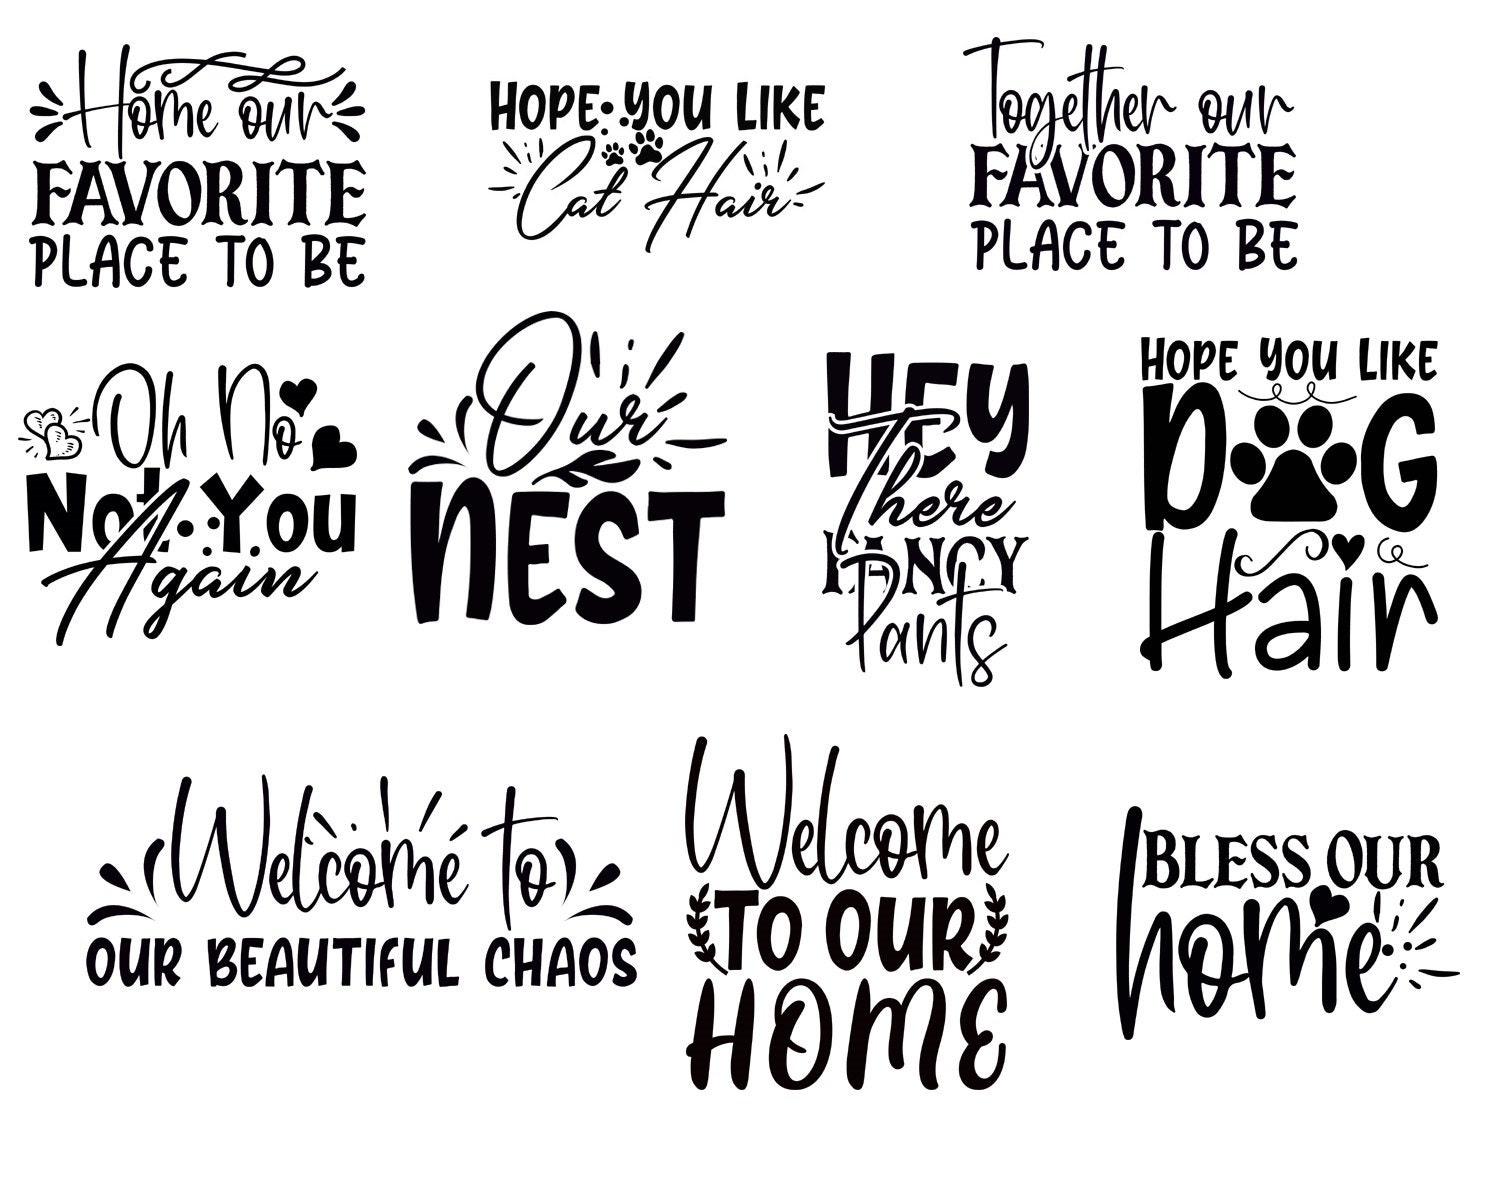 Home our
FAVORITE
PLACE TO BE
HOPE YOU LIKE
Cat Hair
Together our
FAVORITE
PLACE TO BE
Oh No
Not You
Again
Our
NEST
HEY
There
FANCY
Pants
HOPE YOU LIKE
DOG
Hair
Welcome to
OUR BEAUTIFUL CHAOS
Welcome
TO OUR
HOME
BLESS OUR
home